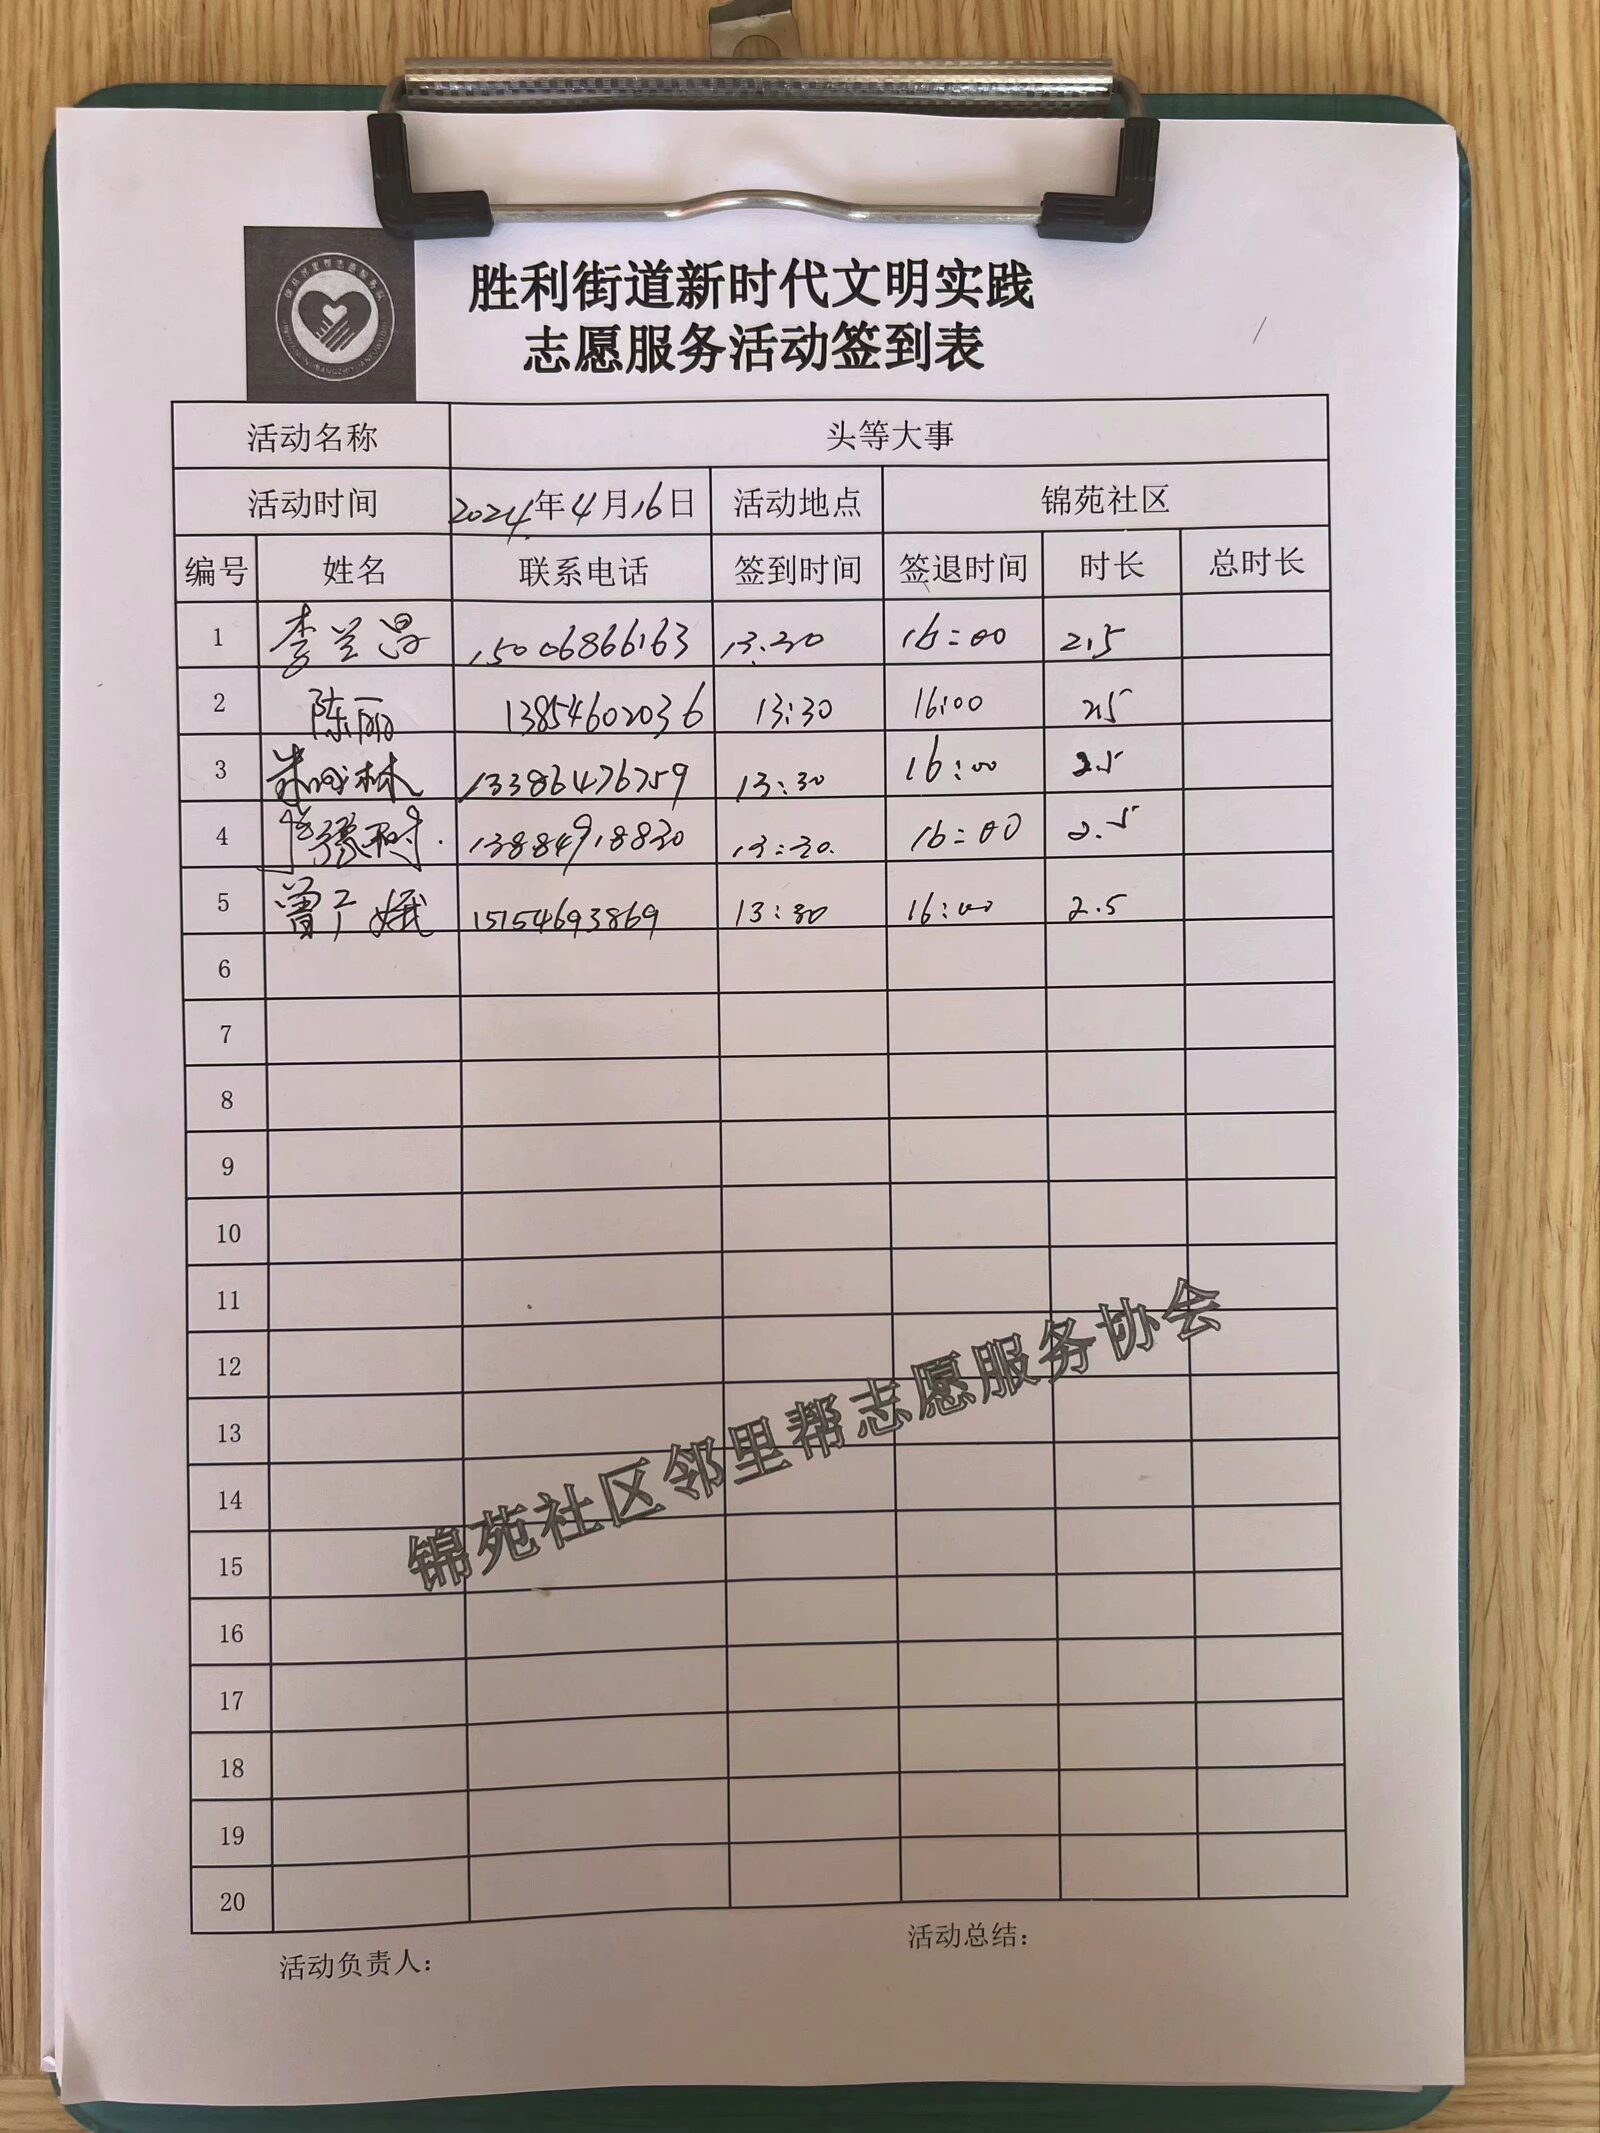 胜利街道新时代文明实践
志愿服务活动签到表
活动名称 头等大事
活动时间 2024年4月16日 活动地点 锦苑社区
编号 姓名 联系电话 签到时间 签退时间 时长 总时长
1 李兰 15006866163 13:30 16:00 2.5
2 陈丽 13854602036 13:30 16:00 2.5
3 林 13386476759 13:30 16:00 2.5
4 13884918830 13:30. 16:00 2.5
5 曾广娥 15154693869 13:30 16:00 2.5
6
7
8
9
10
11
12
13
14
15
16
17
18
19
20
锦苑社区邻里帮志愿服务协会
活动负责人：
活动总结：